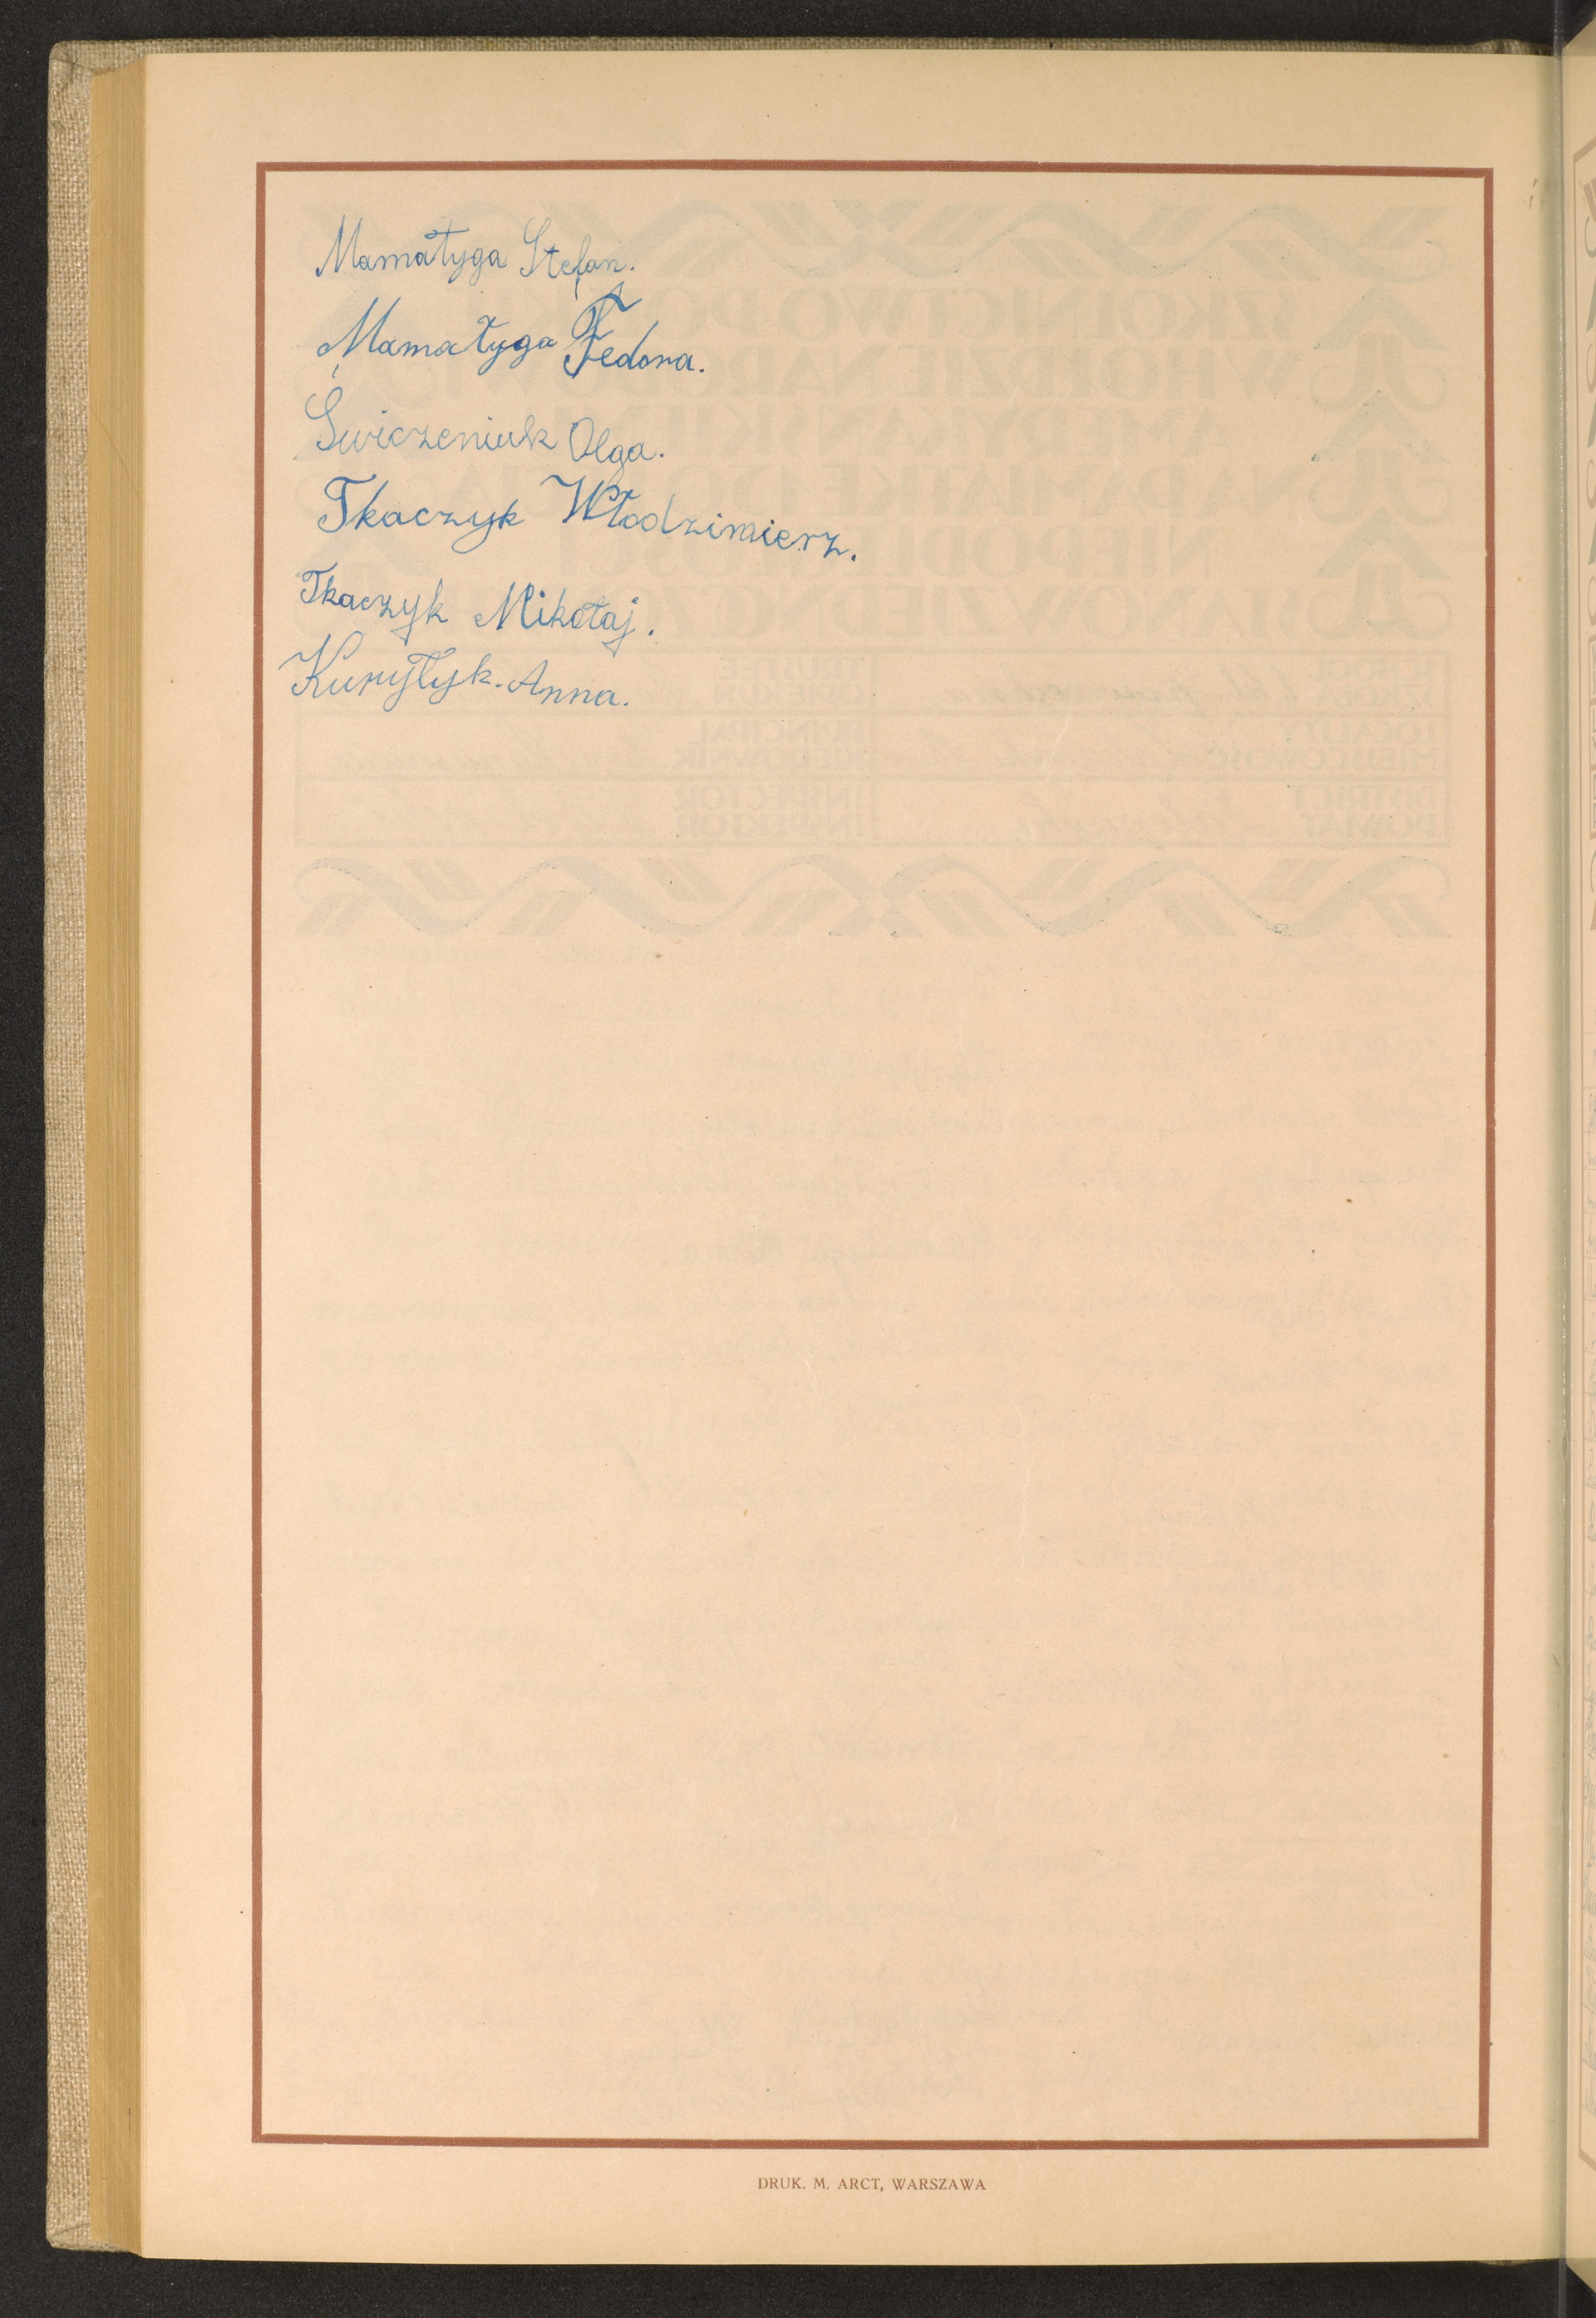 Mamałyga Stefan.
Mamałyga Fedora.
Świczeniuk Olga.
Tkaczyk Włodzimierz.
Tkaczyk Mikołaj.
Kuryłyk Anna.
DRUK. M. ARCT, WARSZAWA